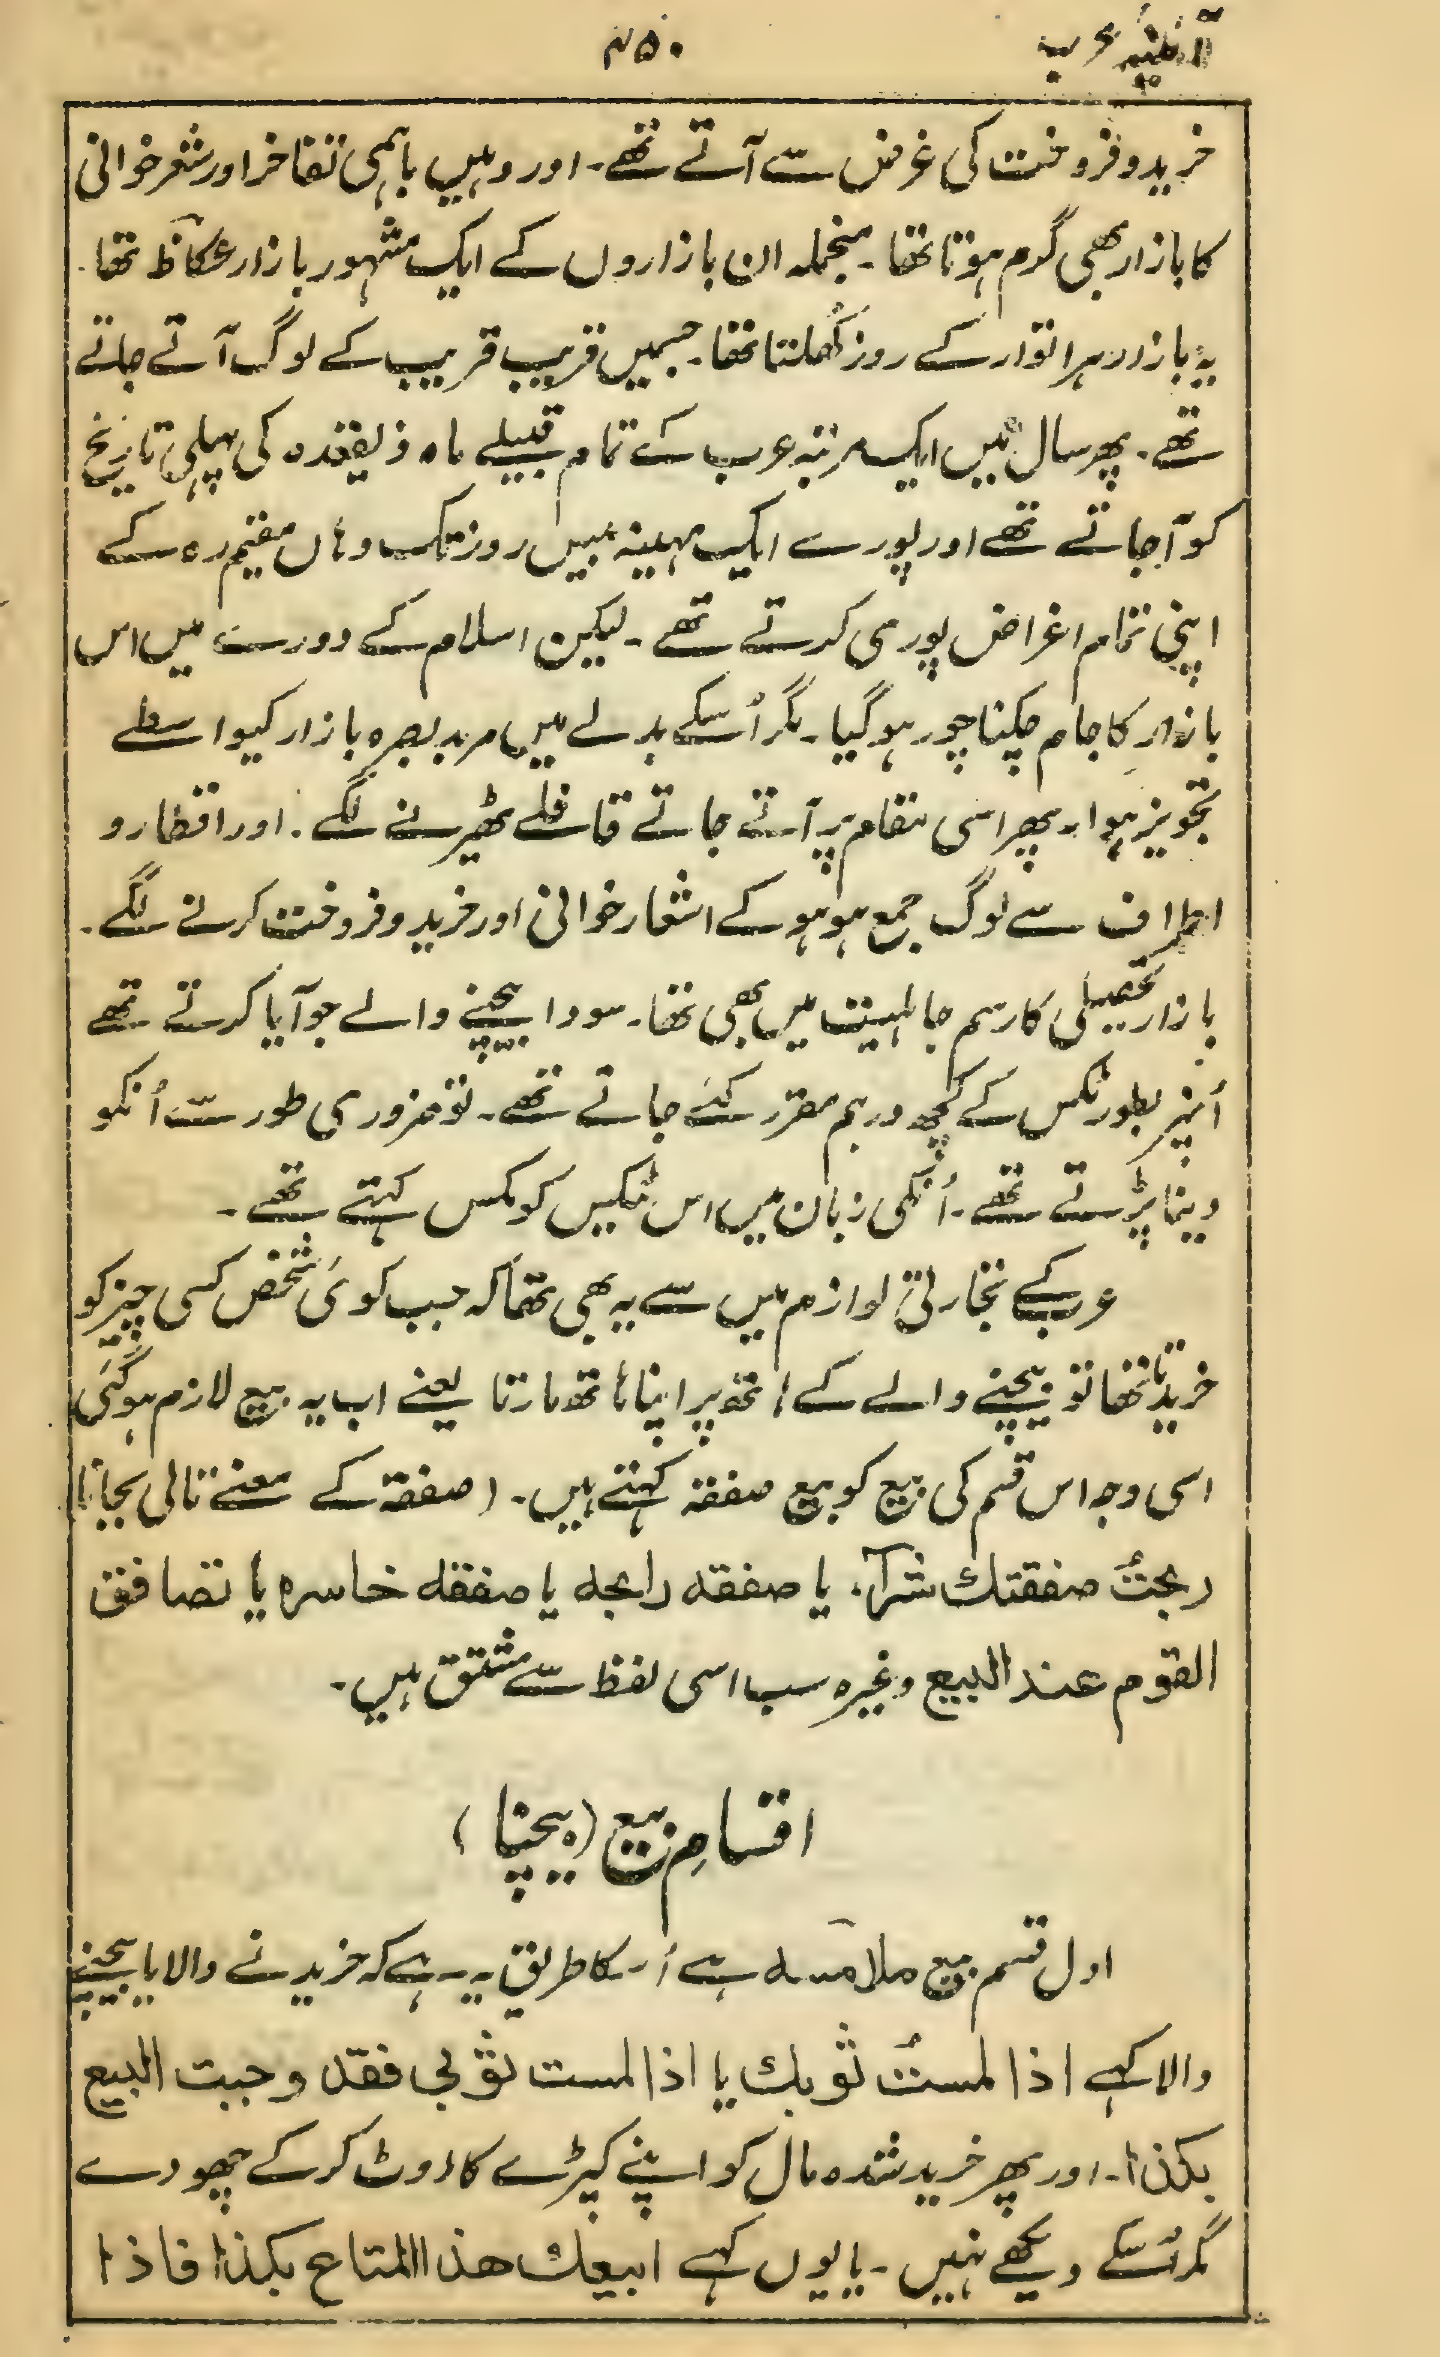 آئینہ عرب
۴۵۰
خرید و فروخت کی غرض سے آتے تھے۔ اور وہیں باہمی تفاخر اور شعر خوانی
کا بازار بھی گرم ہوتا تھا۔ منجملہ ان بازاروں کے ایک مشہور بازار عکاظ تھا۔
یہ بازار ہر اتوار کے روز کُھلتا تھا۔ جسمیں قریب قریب کے لوگ آتے جاتے
تھے۔ پھر سال میں ایک مرتبہ عرب کے تمام قبیلے ماہ ذیقعدہ کی پہلی تاریخ
کو آجاتے تھے اور پورے ایک مہینہ بیس روز تک وہاں مقیم رہ کے
اپنی تمام اغراض پوری کرتے تھے۔ لیکن اسلام کے دورے میں اس
بازار کا جام چکنا چور ہو گیا۔ مگر اُسکے بدلے میں مربد بصرہ بازار کیواسطے
تجویز ہوا۔ پھر اسی مقام پر آتے جاتے قافلے ٹھیرنے لگے۔ اور اقطار و
اطراف سے لوگ جمع ہو ہو کے اشعار خوانی اور خرید و فروخت کرنے لگے۔
بازار تحصیلی کا رسم جاہلیت میں بھی تھا۔ سودا بیچنے والے جو آیا کرتے تھے
اُنپر بطور ٹکس کے کچھ درہم مقرر کئے جاتے تھے۔ تو ضروری طور سے اُنکو
دینا پڑتے تھے۔ اُنکی زبان میں اس ٹیکس کو مکس کہتے تھے۔
عرب کے تجارتی لوازم میں سے یہ بھی تھا کہ جب کوئی شخص کسی چیز کو
خریدتا تھا تو بیچنے والے کے ہاتھ پر اپنا ہاتھ مارتا یعنے اب یہ بیع لازم ہو گئی
اسی وجہ اس قسم کی بیع کو بیع صفقہ کہتے ہیں۔ (صفقة کے معنے تالی بجانا)
ربحتُ صفقتك شرآء یا صفقه رابحه یا صفقه خاسره یا تصافق
القوم عند البیع وغیرہ سب اسی لفظ سے مشتق ہیں۔
اقسامِ بیع (بیچنا)
اول قسم بیع ملامسہ ہے اُسکا طریق یہ ہے کہ خریدنے والا یا بیچنے
والا کہے اذا لمستُ ثوبك یا اذا لمست ثوبی فقد وجبت البیع
بکذا۔ اور پھر خرید شدہ مال کو اپنے کپڑے کا اوٹ کر کے چھو دے
مگر اُسکے دیکھے نہیں۔ یا یوں کہے ابیعك هذا المتاع بکذا فاذا